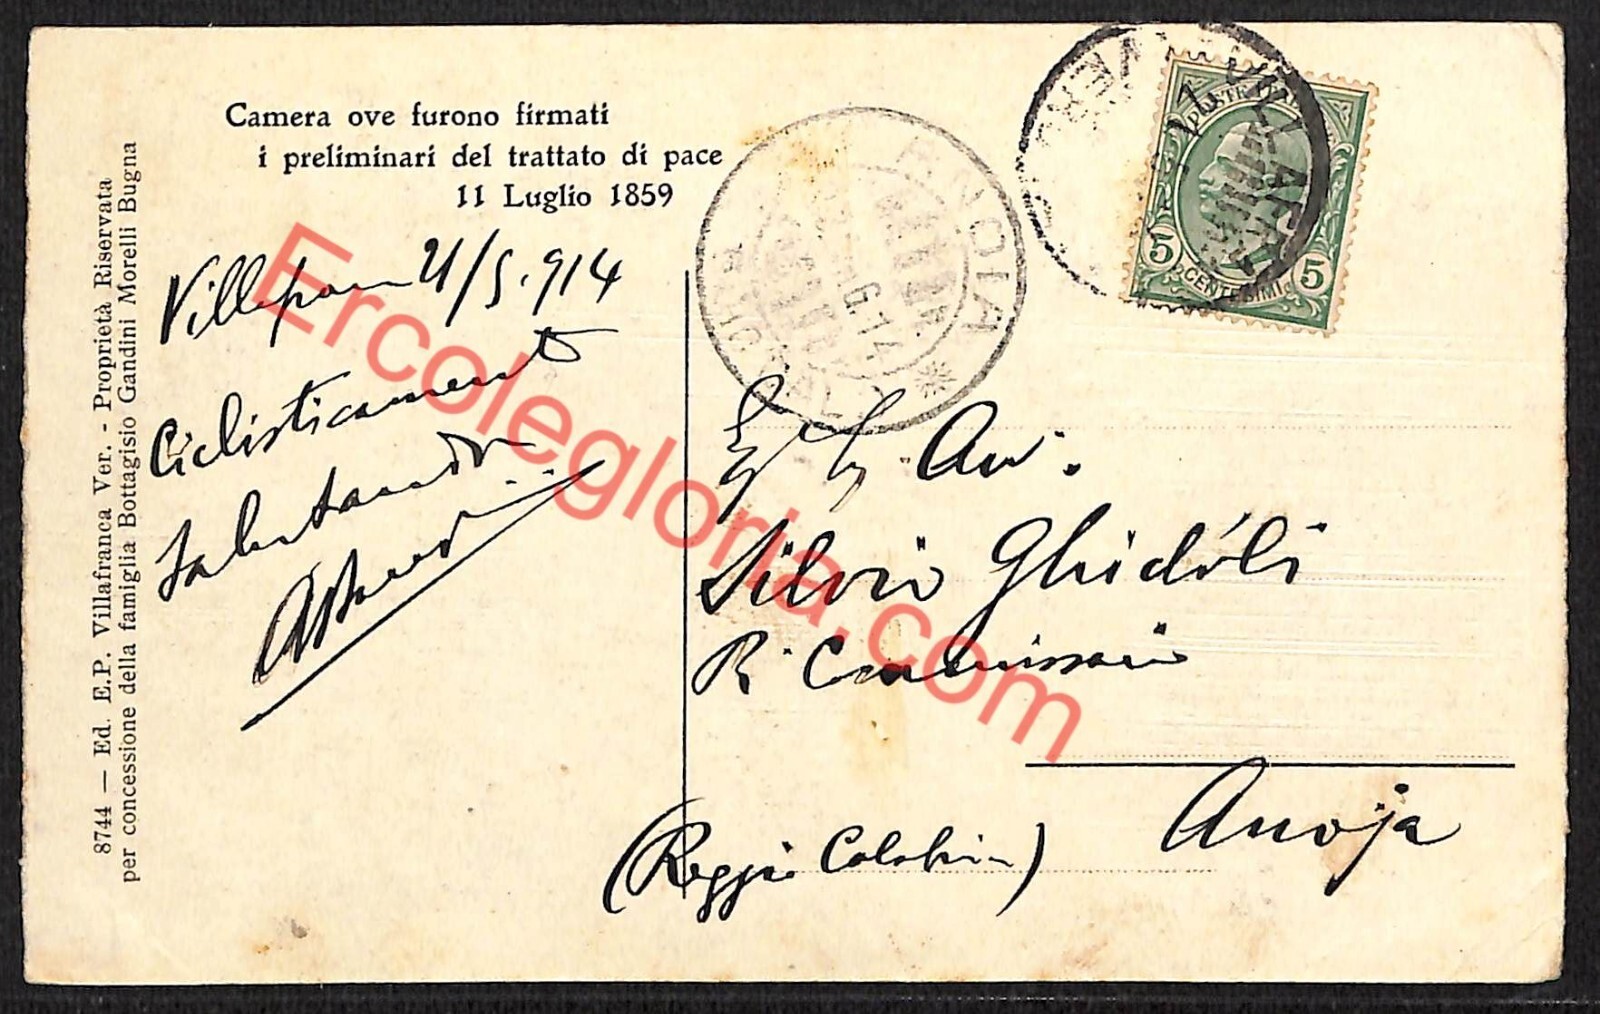 Camera ove furono firmati
i preliminari del trattato di pace
11 Luglio 1859
8744 — Ed. E.P. Villafranca Ver. - Proprietà Riservata
per concessione della famiglia Bottagisio Gandini Morelli Bugna
21/5.914
Ciclisticamente
Salutandola
Av.
Silvio Ghidóli
R. Commissario
Anoja
(Reggio Calabria)
POSTE ITALIANE
5 CENTESIMI 5
ANOIA
Ercolegloria.com